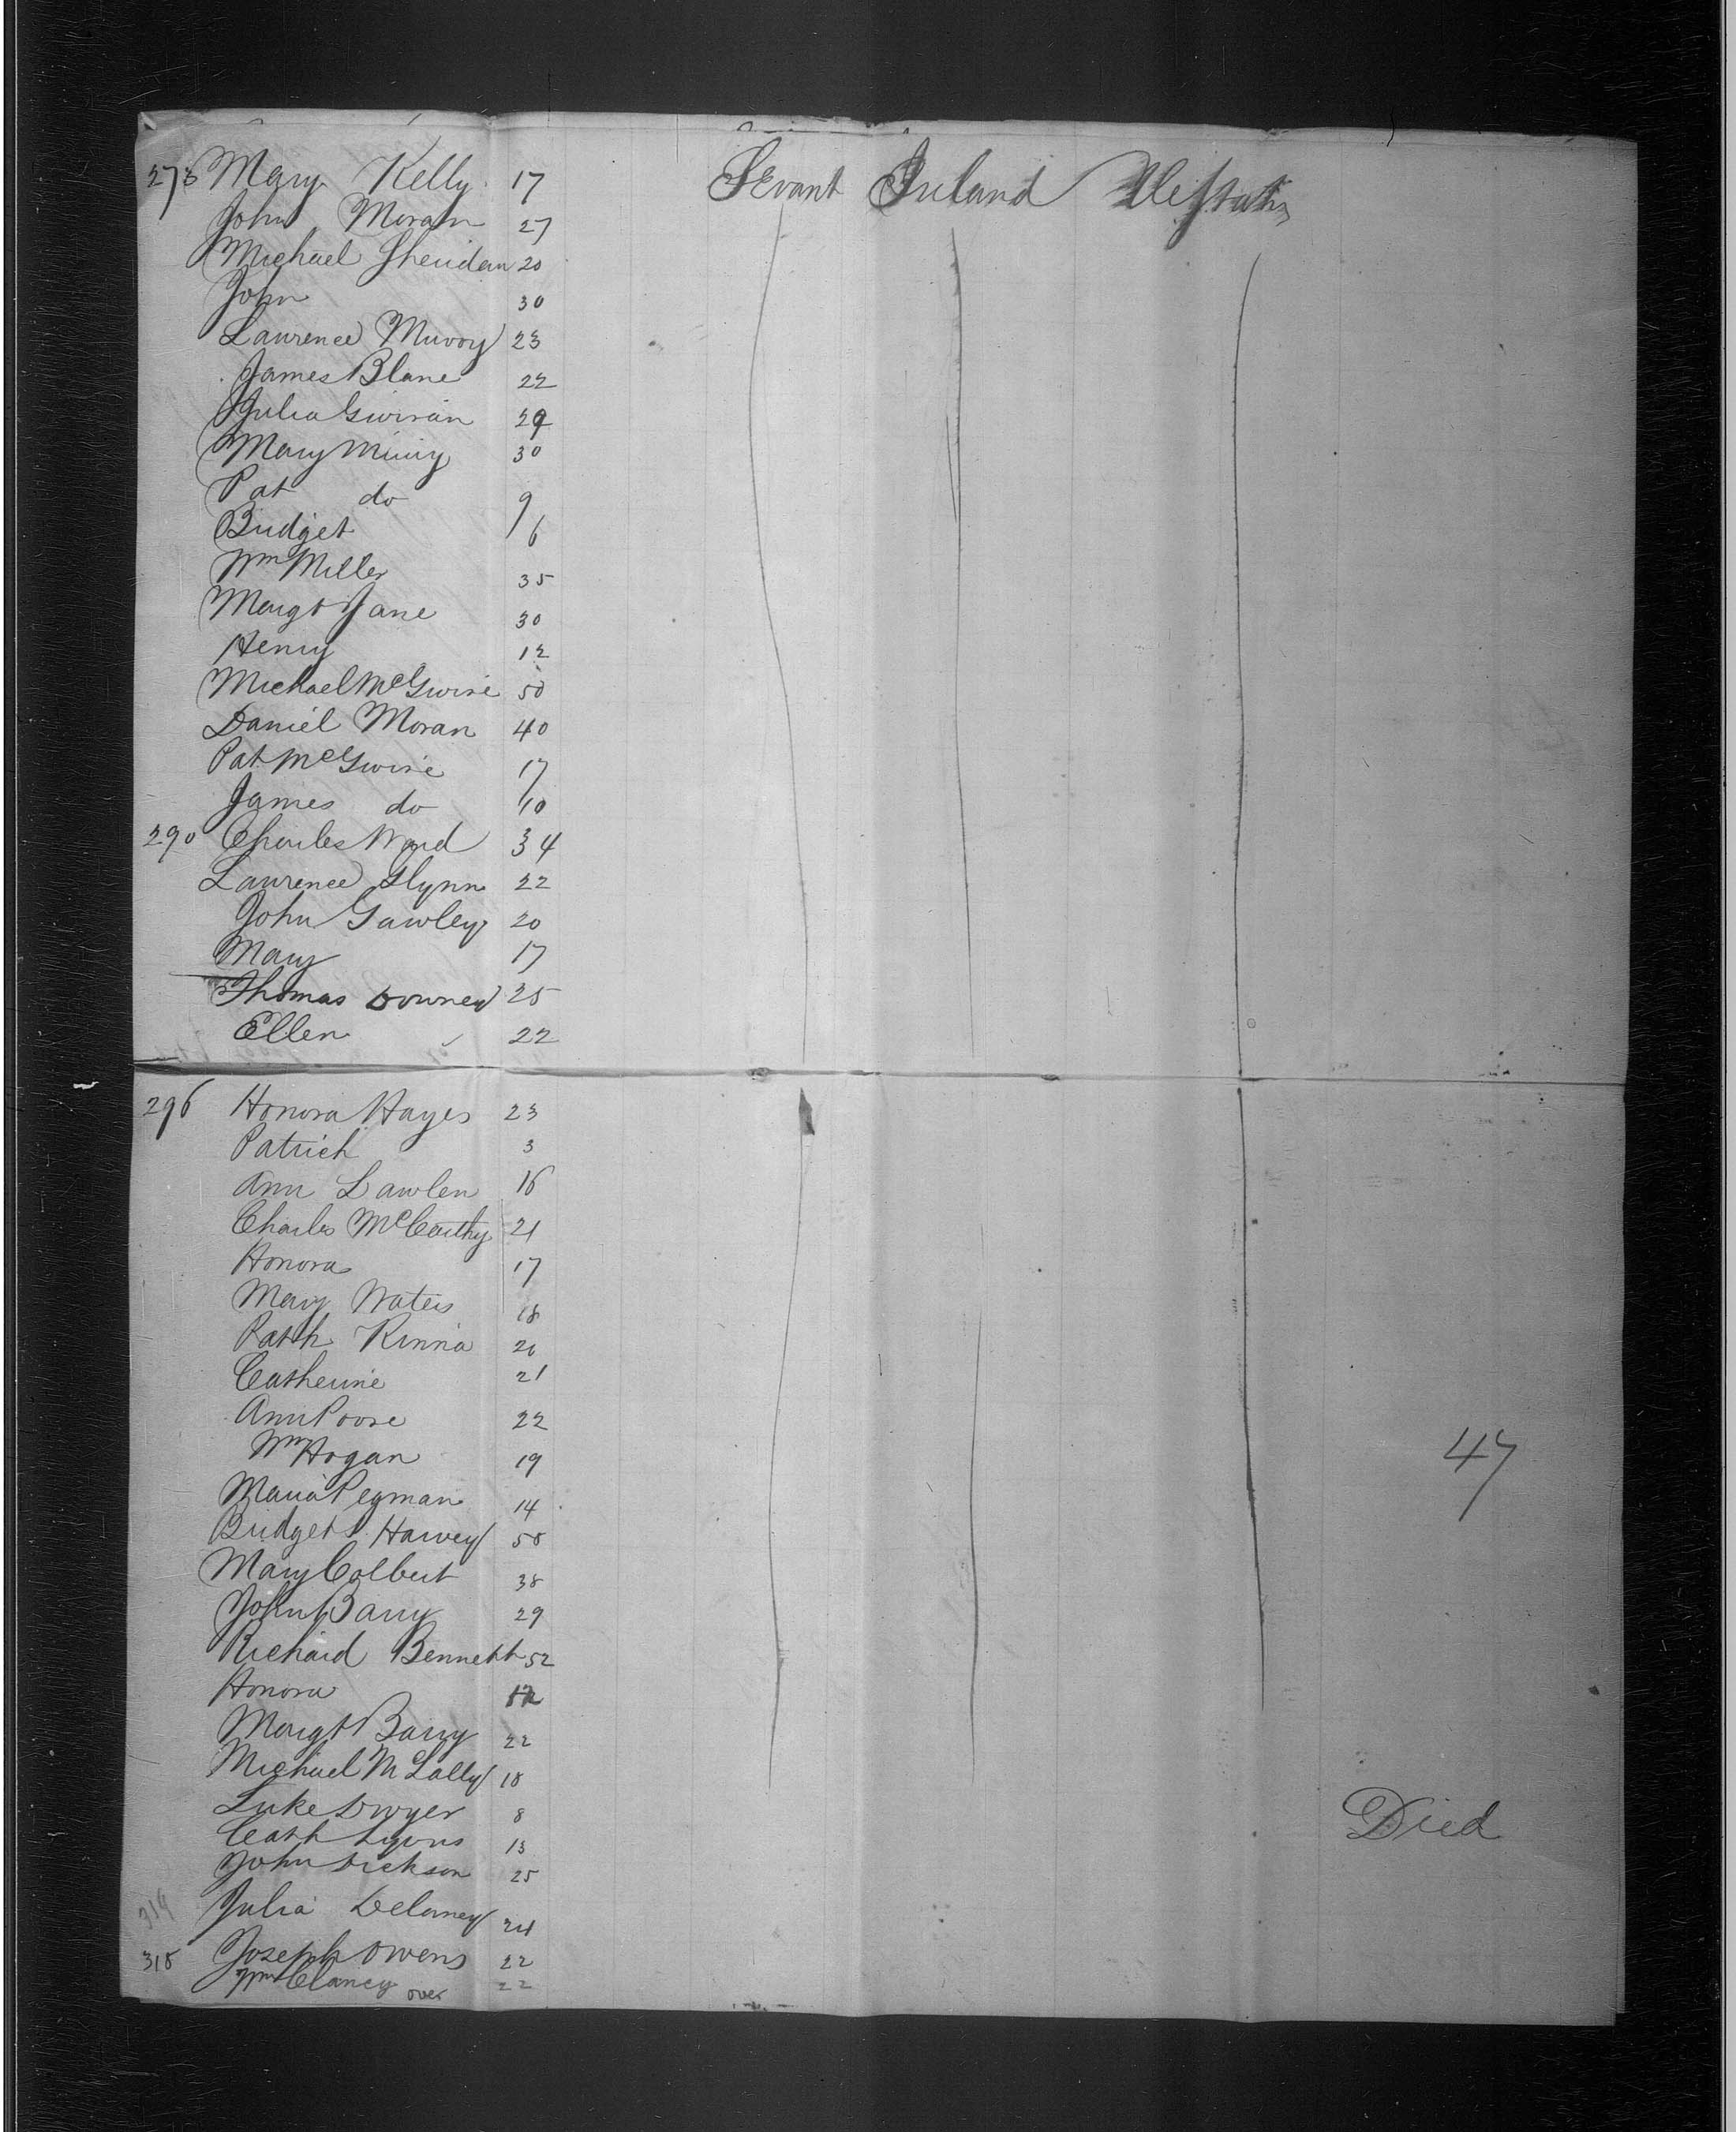 273 Mary Kelly 17 Sevant Ireland Ue States
John Moran 27
Michael Sheridan 20
John 30
Laurence Muvoy 23
James Blane 22
Julia 29
Mary 30
Pat do 9
Bridget 6
Wm Miller 35
Margt Jane 30
Henry 12
Michael McGwire 50
Daniel Moran 40
Pat McGwire 17
James do 10
290 Charles Ward 34
Laurence Glynn 22
John Gawley 20
Mary 17
Thomas Downey 25
Ellen 22
296 Honora Hayes 23
Patrick 3
Ann Lawlen 16
Charles McCarthy 21
Honora 17
Mary Waters 18
Patk Kinna 20
Catherine 21
Ann Poore 22
Wm Hogan 19
47
Maria Pegman 14
Bridget Harvey 50
Mary Colbert 38
John Barry 29
Richard Bennett 52
Honora
Margt Barry 22
Michael McLally 18
Luke Dwyer 8 Died
Cath Lyons 13
John Dickson 25
319 Julia Delaney 24
318 Joseph Owens 22
Wm Clancy over 22